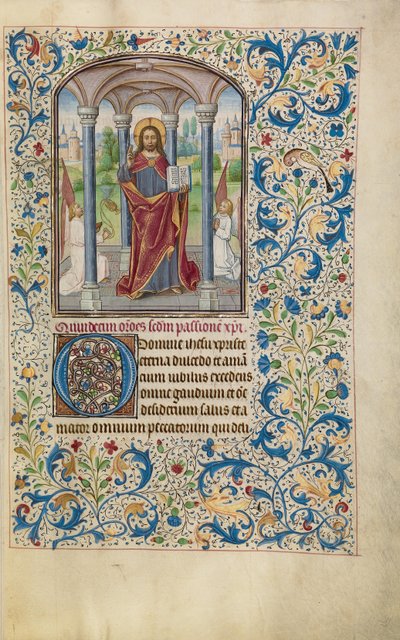 Quindecim orões scdm passione xpi.
O Domine ihesu xpriste
eterna dulcedo et amā
cium iubilus excedens
omne gaudium et oē
desiderium salus et a
mator omnium peccatorum qui deli